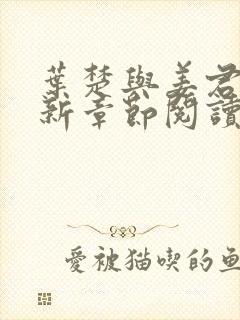 葉楚與姜君
新章節閱讀
愛被貓喫的魚